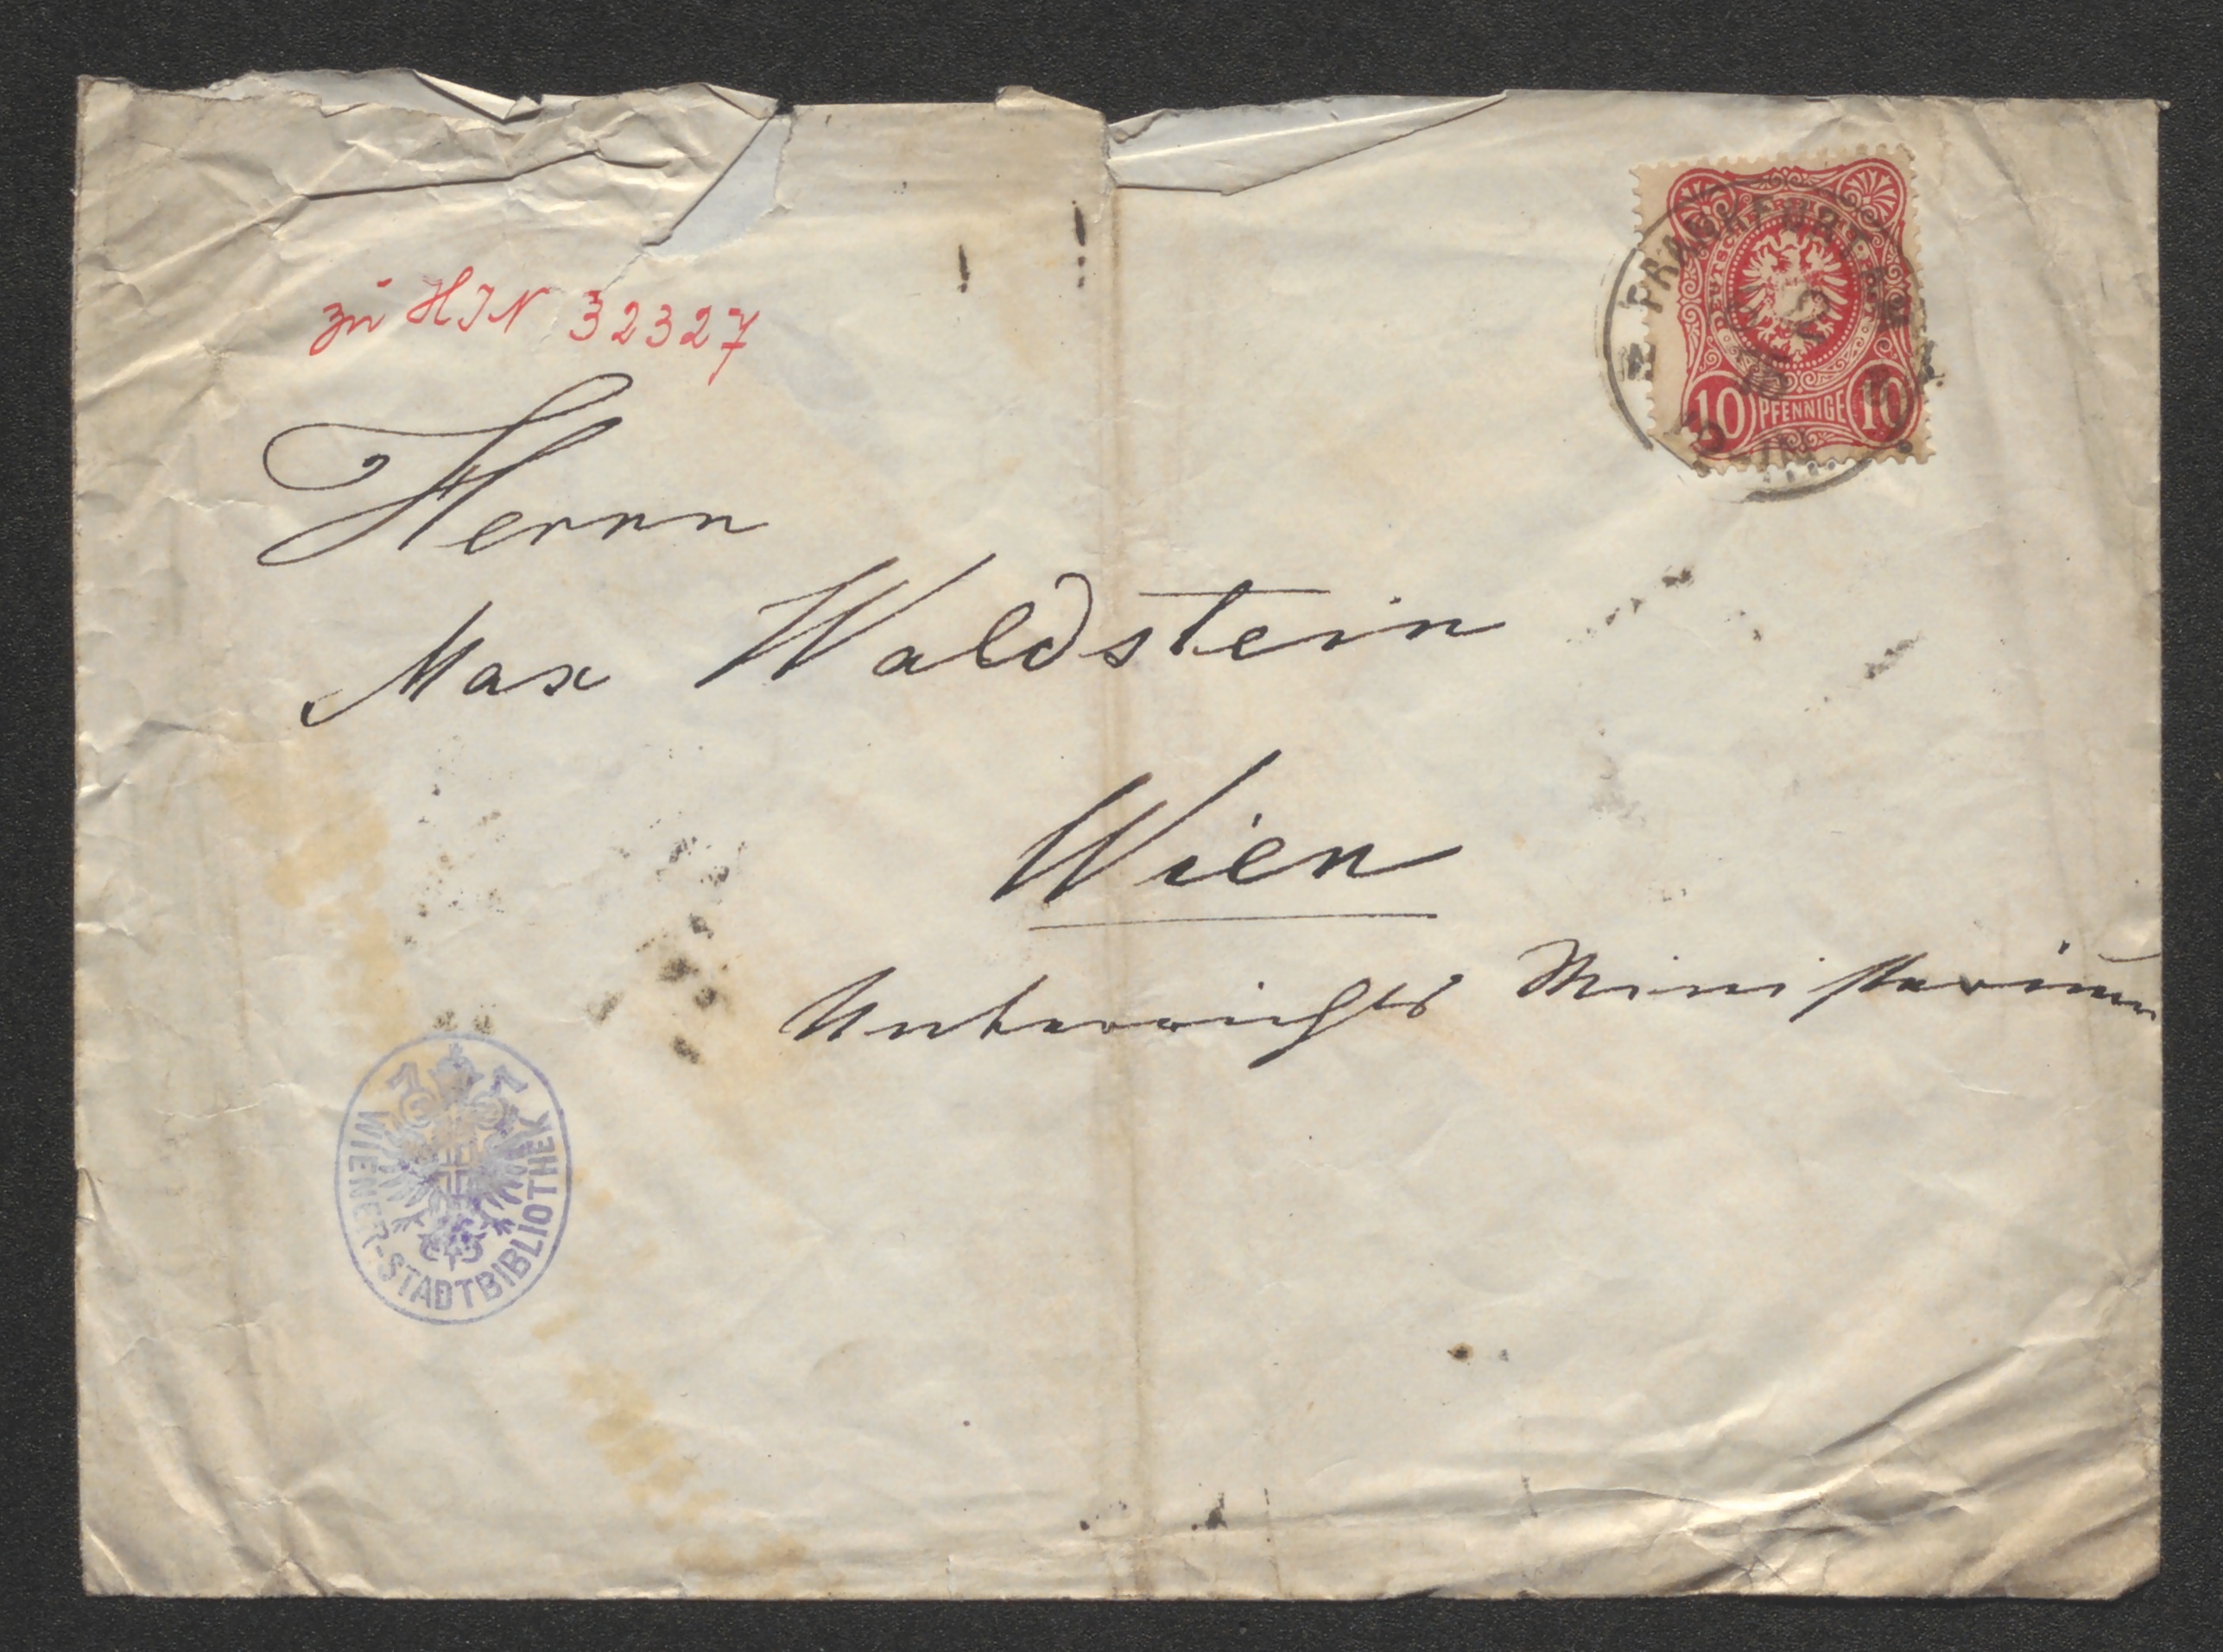 zu HIN 32327
10 PFENNIGE 10
Herrn
Max Waldstein
Wien
Unterrichts Ministerium
WIENER-STADTBIBLIOTHEK